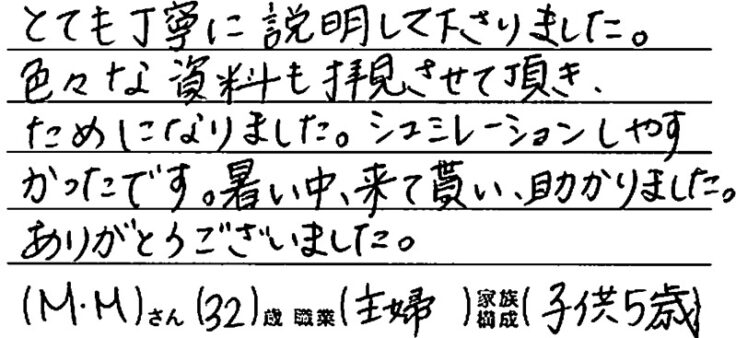 とても丁寧に説明して下さりました。
色々な資料も拝見させて頂き、
ためになりました。シュミレーションしやす
かったです。暑い中、来て貰い、助かりました。
ありがとうございました。
(M・M)さん(32)歳 職業(主婦 )家族構成(子供5歳)